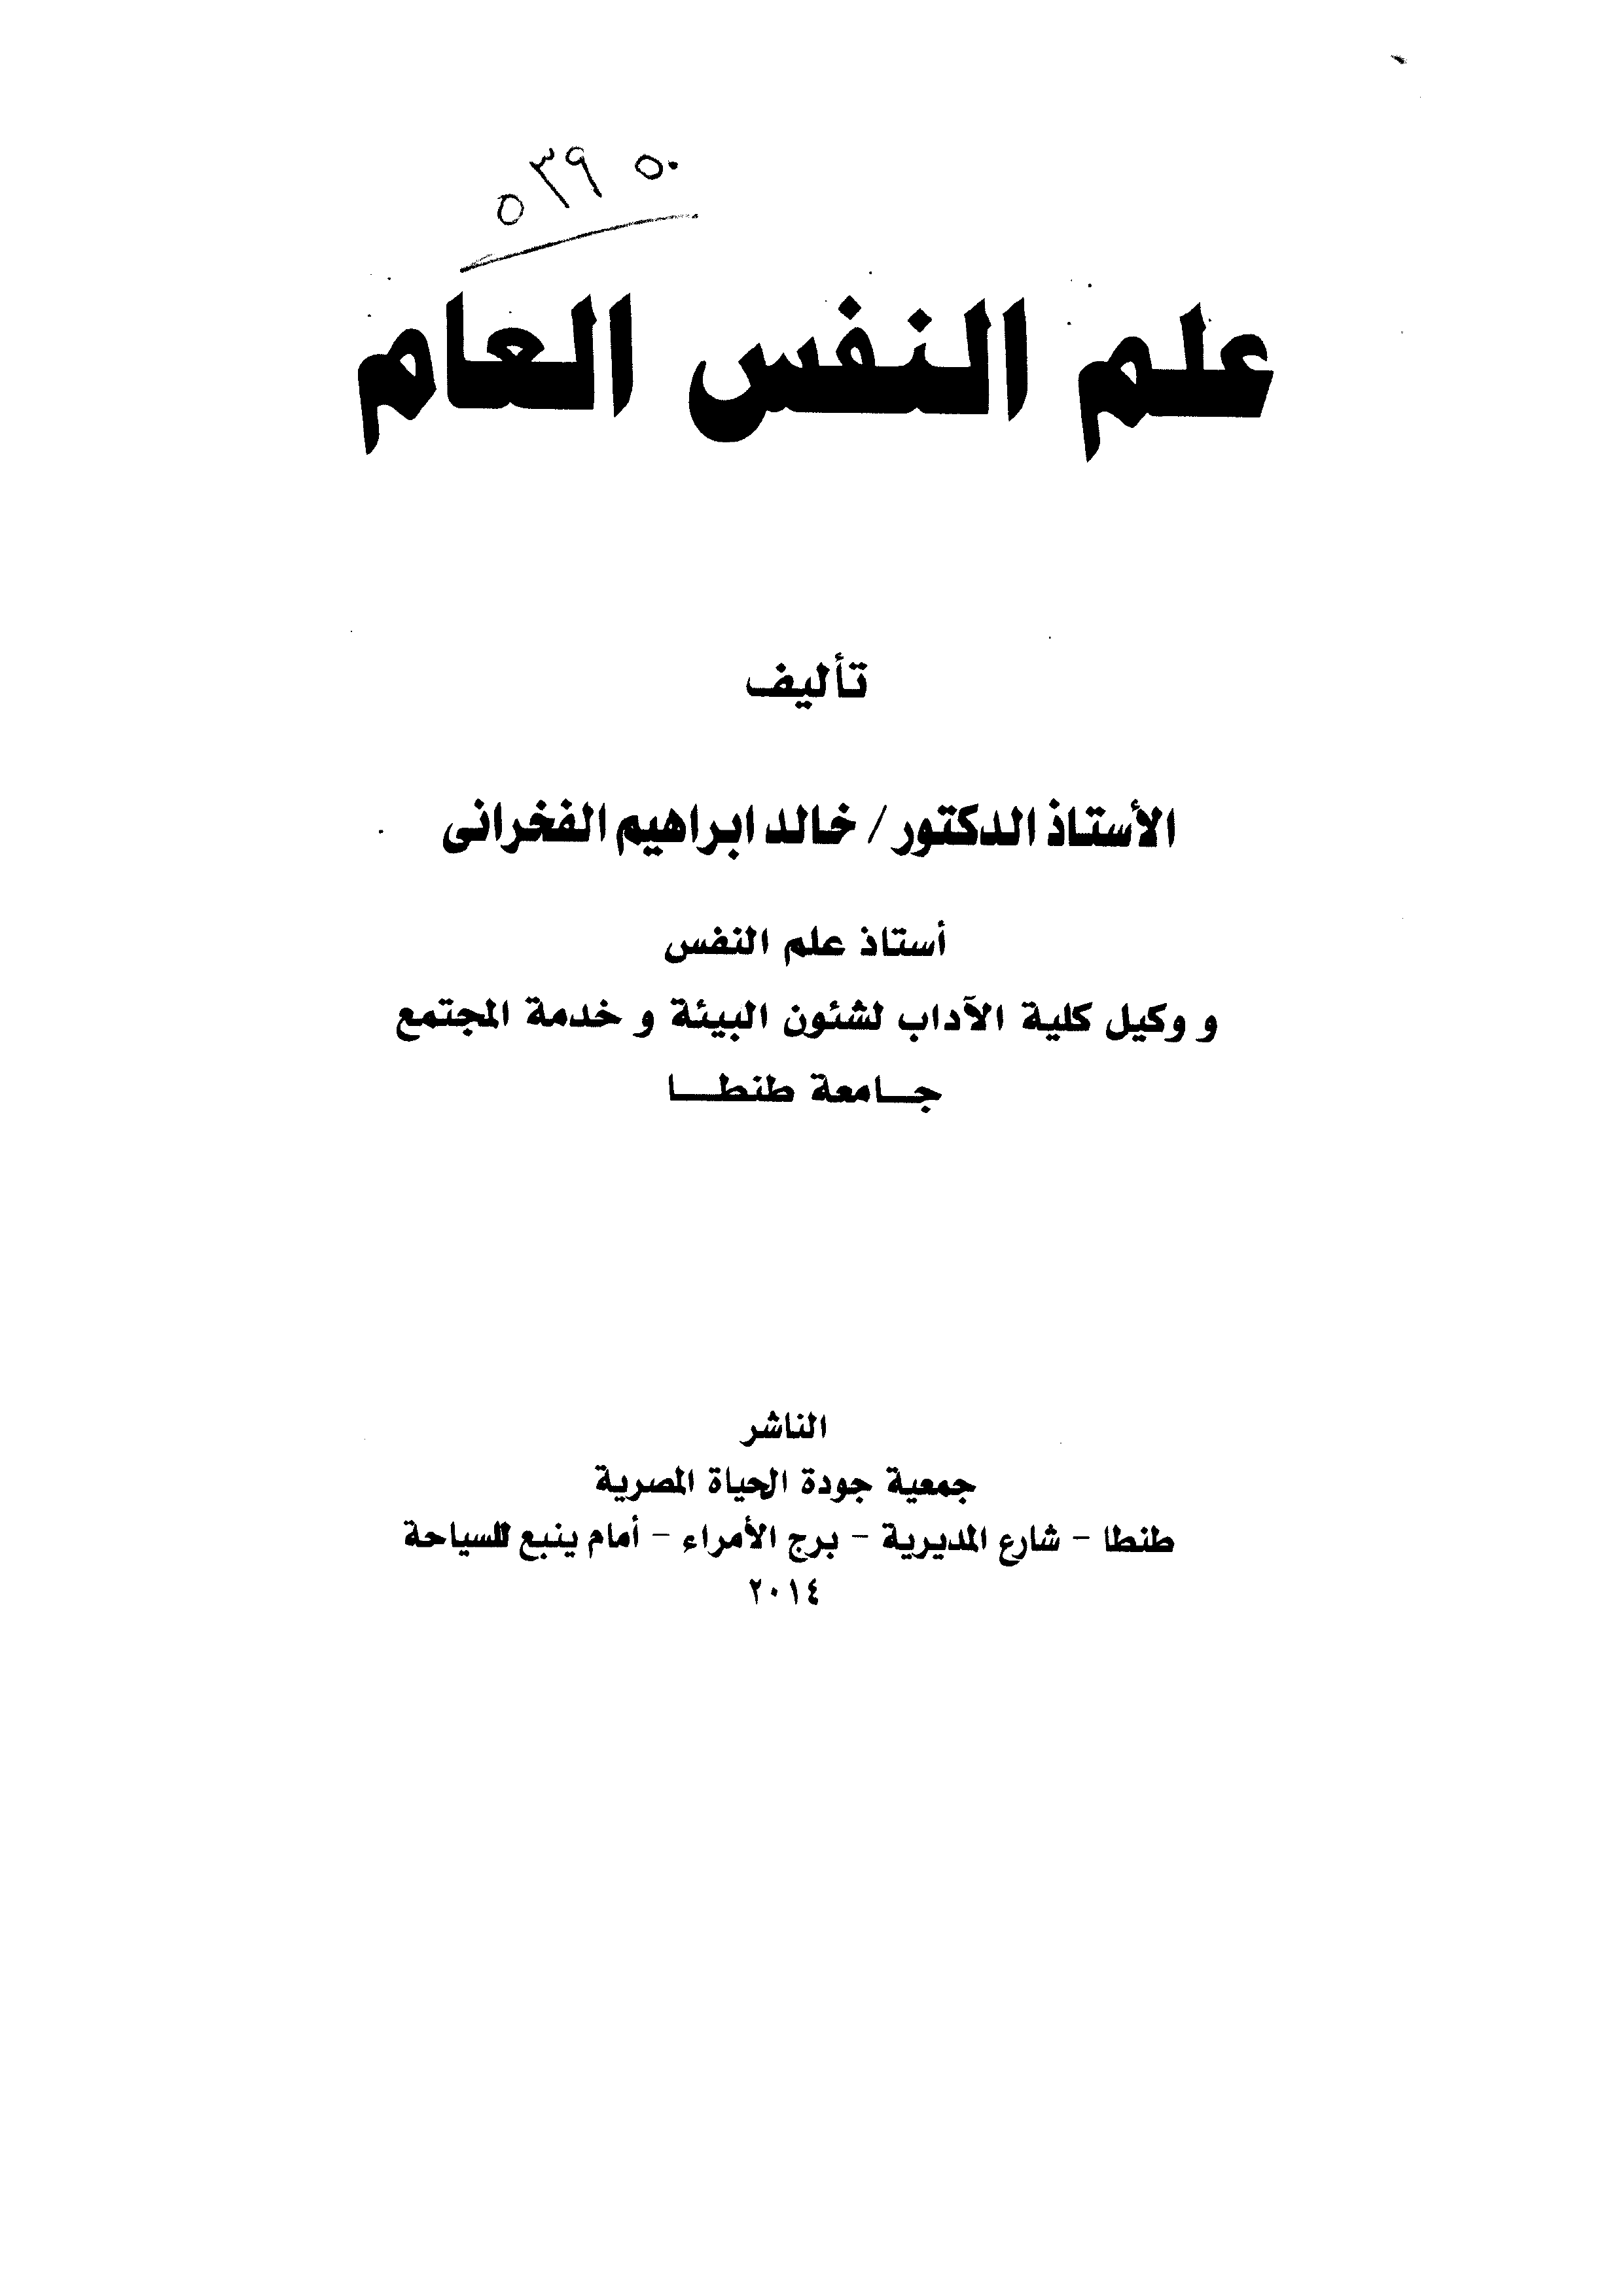 ٥٣٩٥٠
علم النفس العام
تأليف
الأستاذ الدكتور / خالد ابراهيم الفخرانى
أستاذ علم النفس
و وكيل كلية الآداب لشئون البيئة و خدمة المجتمع
جـــامعة طنطـــا
الناشر
جمعية جودة الحياة المصرية
طنطا - شارع المديرية - برج الأمراء - أمام ينبع للسياحة
٢٠١٤